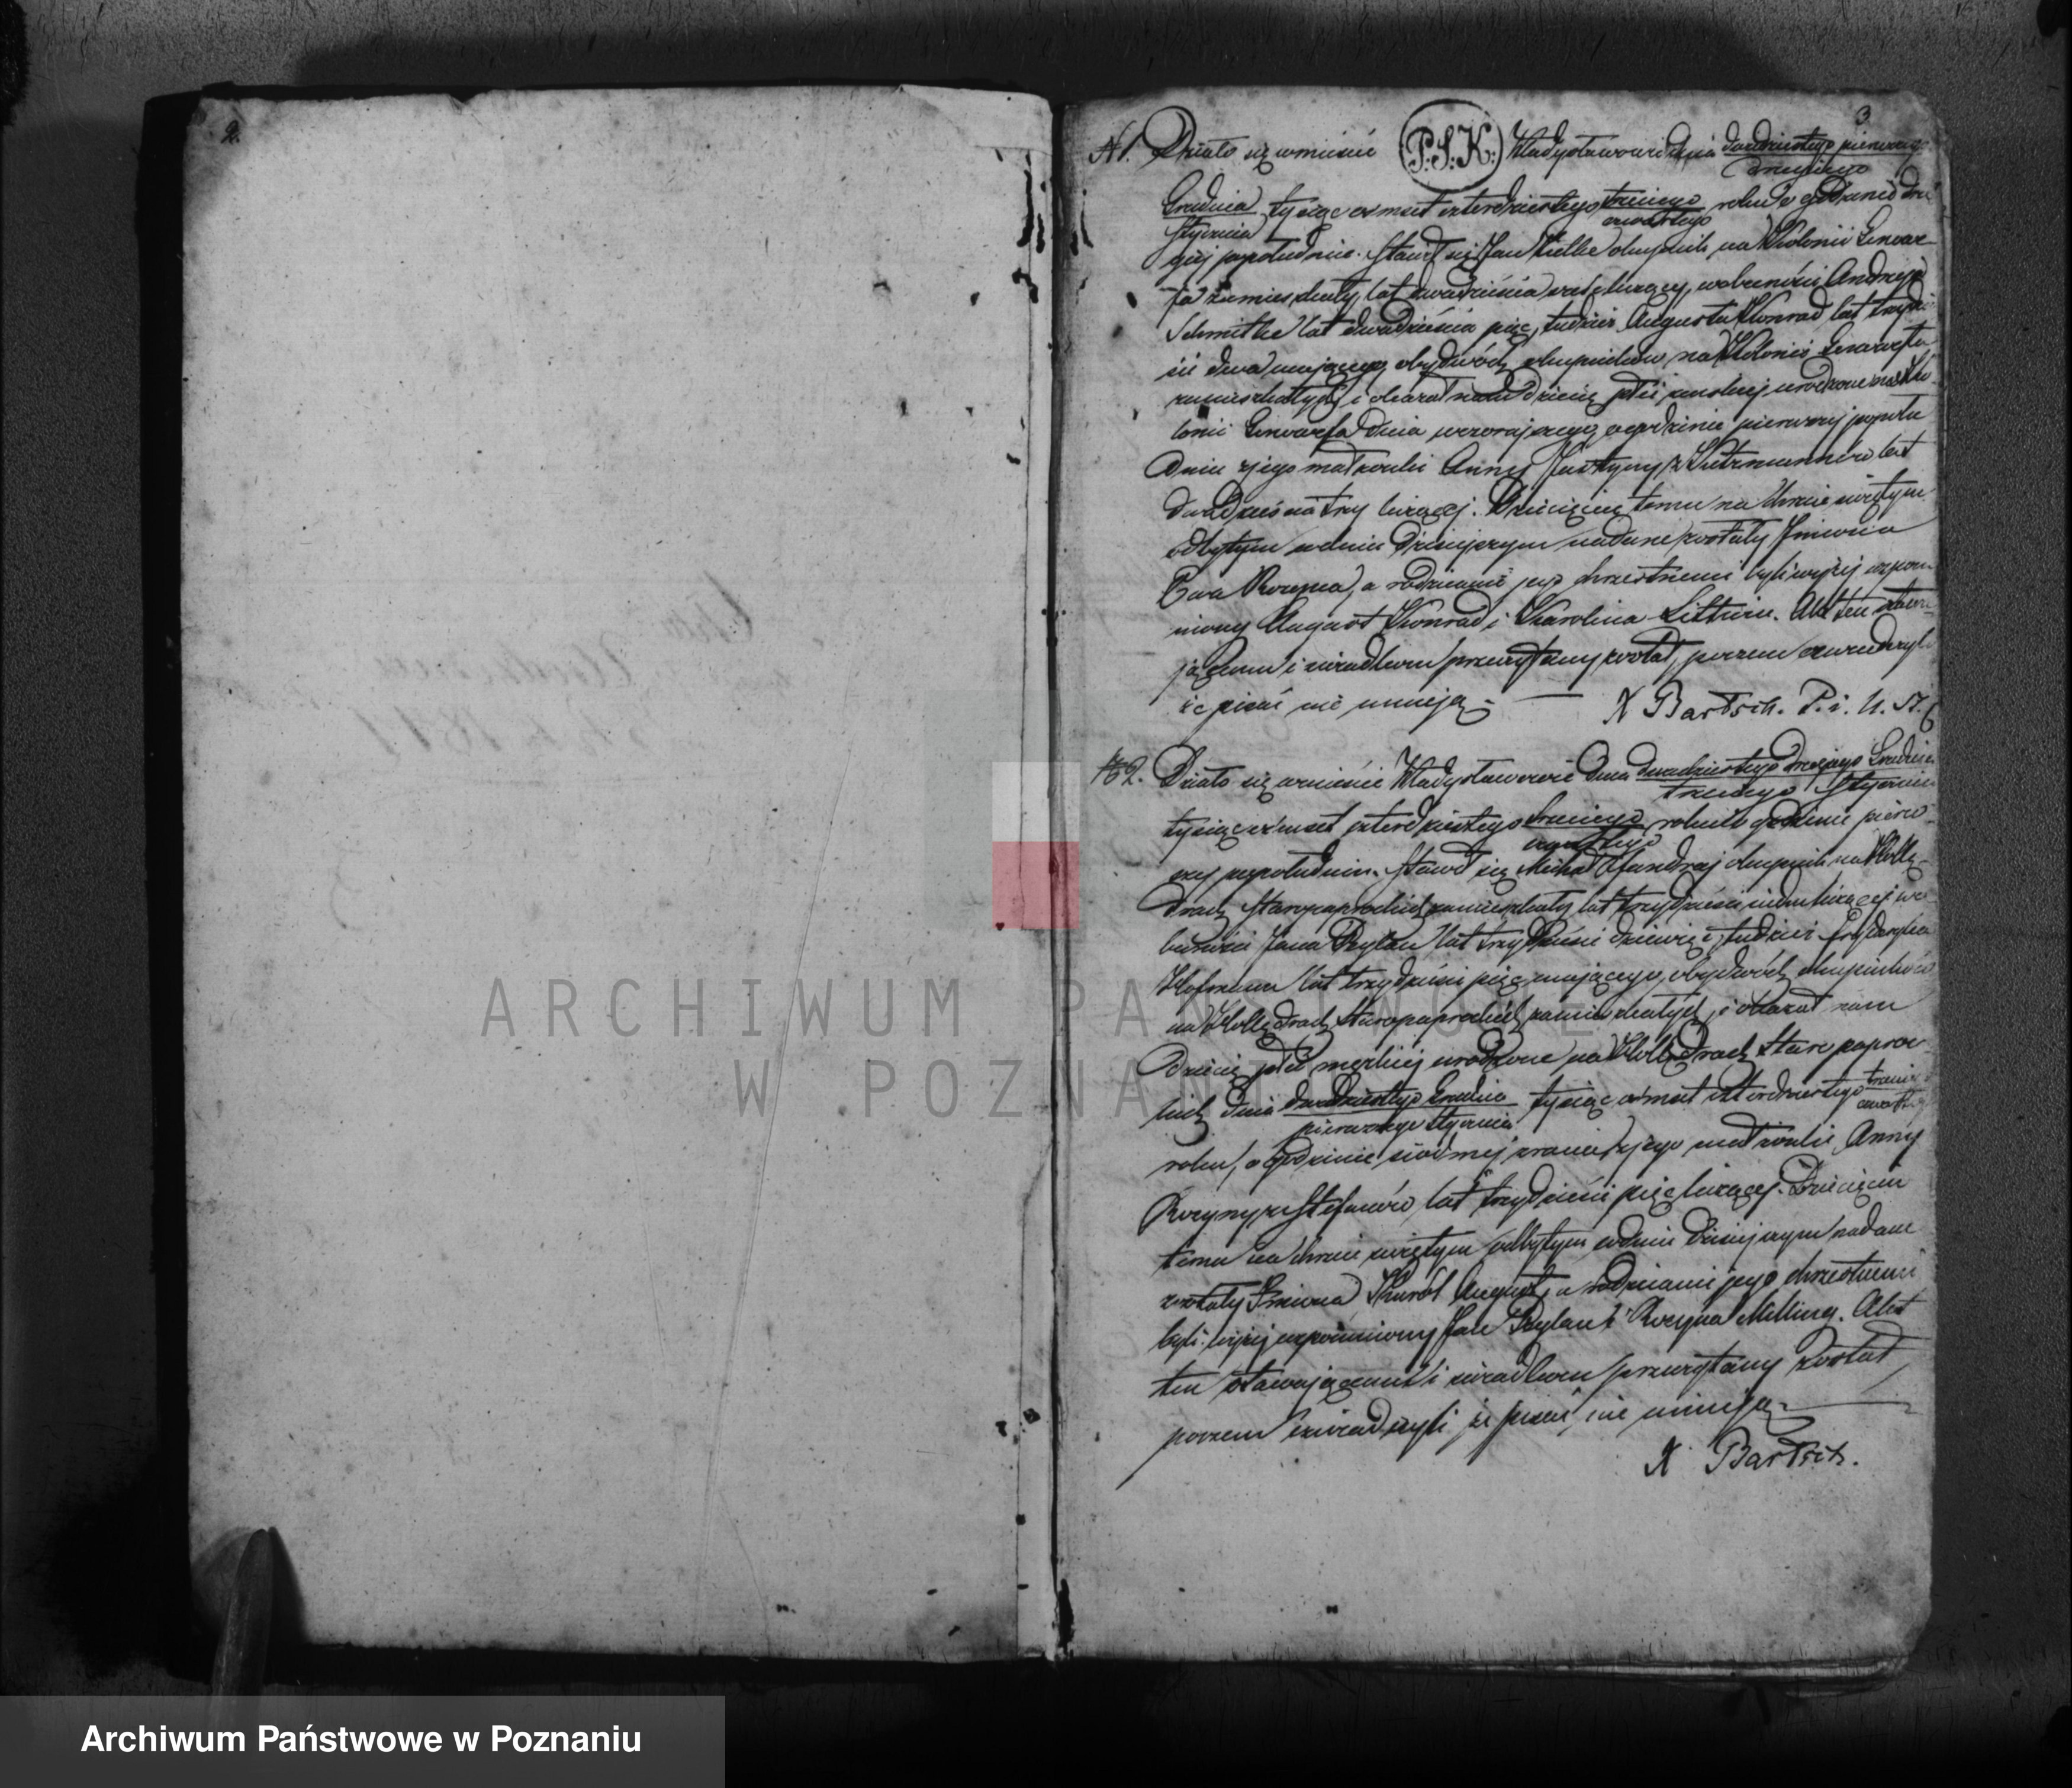 2.
3
N 1. Działo się w mieście (P.S.K.) Władysławowie dnia dwudziestego pierwszego
drugiego
Grudnia tysiąc osmset czterdziestego trzeciego roku o godzinie dru
Stycznia czwartego
giej popołudniu. Stawił się Jan okupnik na Kolonii Genowe-
fa zamieszkały, lat dwadzieścia liczący, w obecności Andrzeja
Schmitke lat dwadzieścia pięć, tudzież Augusta Konrad lat trzydzie
ści dwa mającego, obydwóch okupników na Kolonii Genowefa
zamieszkałych i okazał nam dziecię płci żeńskiej urodzone na Ko-
lonii Genowefa dnia wczorajszego o godzinie pierwszej popołu
dniu z jego małżonki Anny Justyny z lat
dwadzieścia trzy liczącej. Dziecięciu temu na Chrzcie świętym
odbytym w dniu dzisiejszym nadane zostały Imiona
Ewa Rozyna, a rodzicami jego chrzestnemi byli wyżej wspom
niony August Konrad i Karolina. Akt ten stawa-
jącemu i świadkom przeczytany został, poczem oświadczyli
że pisać nie umieją.
X Bartsch. P. i. U. S. C
N 2. Działo się w mieście Władysławowie dnia dwudziestego drugiego Grudnia
trzeciego Stycznia
tysiąc osmset czterdziestego trzeciego roku o godzinie pierw-
czwartego
szej popołudniu. Stawił się Michał okupnik na Holę-
drach Staropaprockich zamieszkały lat trzydzieści siedm liczący w o-
becności Jana Rylau lat trzydzieści dziewięć, tudzież Frydryka
Hofmana lat trzydzieści pięć mającego, obydwóch okupników
na Holędrach Staropaprockich zamieszkałych, i okazał nam
dziecię płci męzkiej urodzone na Holędrach Staropaproc-
kich dnia dwudziestego Grudnia tysiąc osmset czterdziestego trzeciego
pierwszego Stycznia czwartego
roku, o godzinie siódmej zrana z jego małżonki Anny
Rozyny z Stefanów lat trzydzieści pięć liczącej. Dziecięciu
temu na Chrzcie świętym odbytym w dniu dzisiejszym nadane
zostały Imiona Karól August, a rodzicami jego chrzestnemi
byli: wyżej wspomniony Jan Rylau i Rozyna Milling. Akt
ten stawającemu i świadkom przeczytany został,
poczem oświadczyli że pisać nie umieją.
X Bartsch.
ARCHIWUM PAŃSTWOWE
W POZNANIU
Archiwum Państwowe w Poznaniu